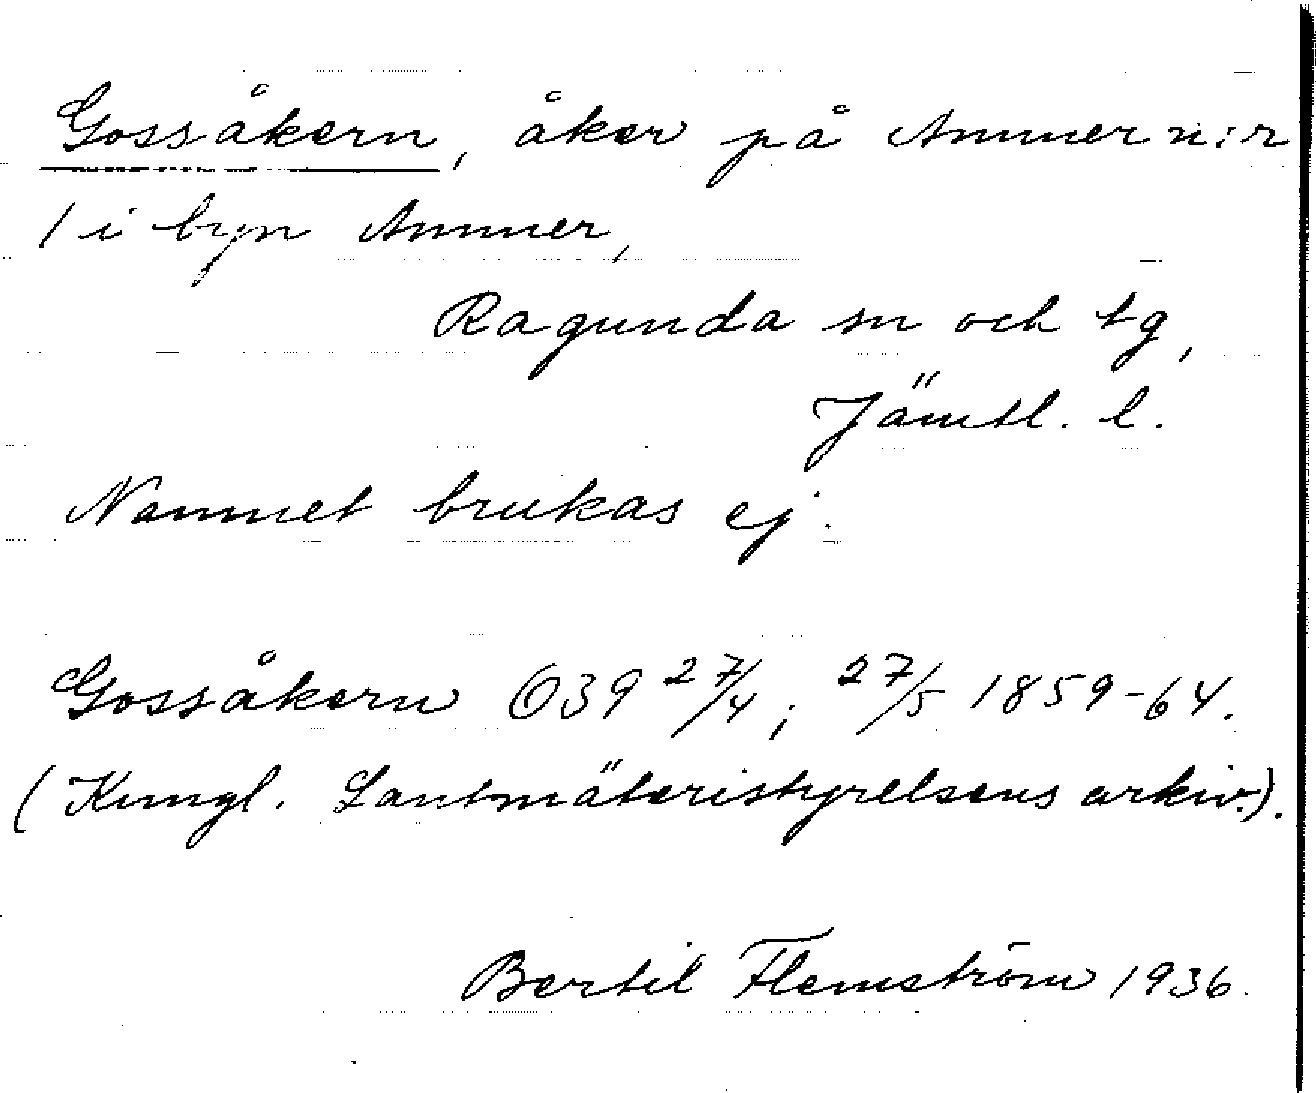 Gossåkern, åker på Ammer n:r
1 i byn Ammer,
Ragunda sn och tg,
Jämtl. l.
Namnet brukas ej.
Gossåkern O39 27/4; 27/5 1859-64.
(Kungl. Lantmäteristyrelsens arkiv.).
Bertil Flemström 1936.